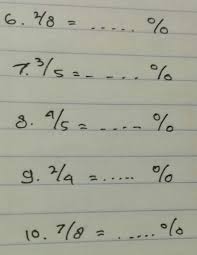 6. 2/8 = ..... %
7. 3/5 = ..... %
8. 4/5 = ..... %
9. 2/4 = ..... %
10. 7/8 = ..... %